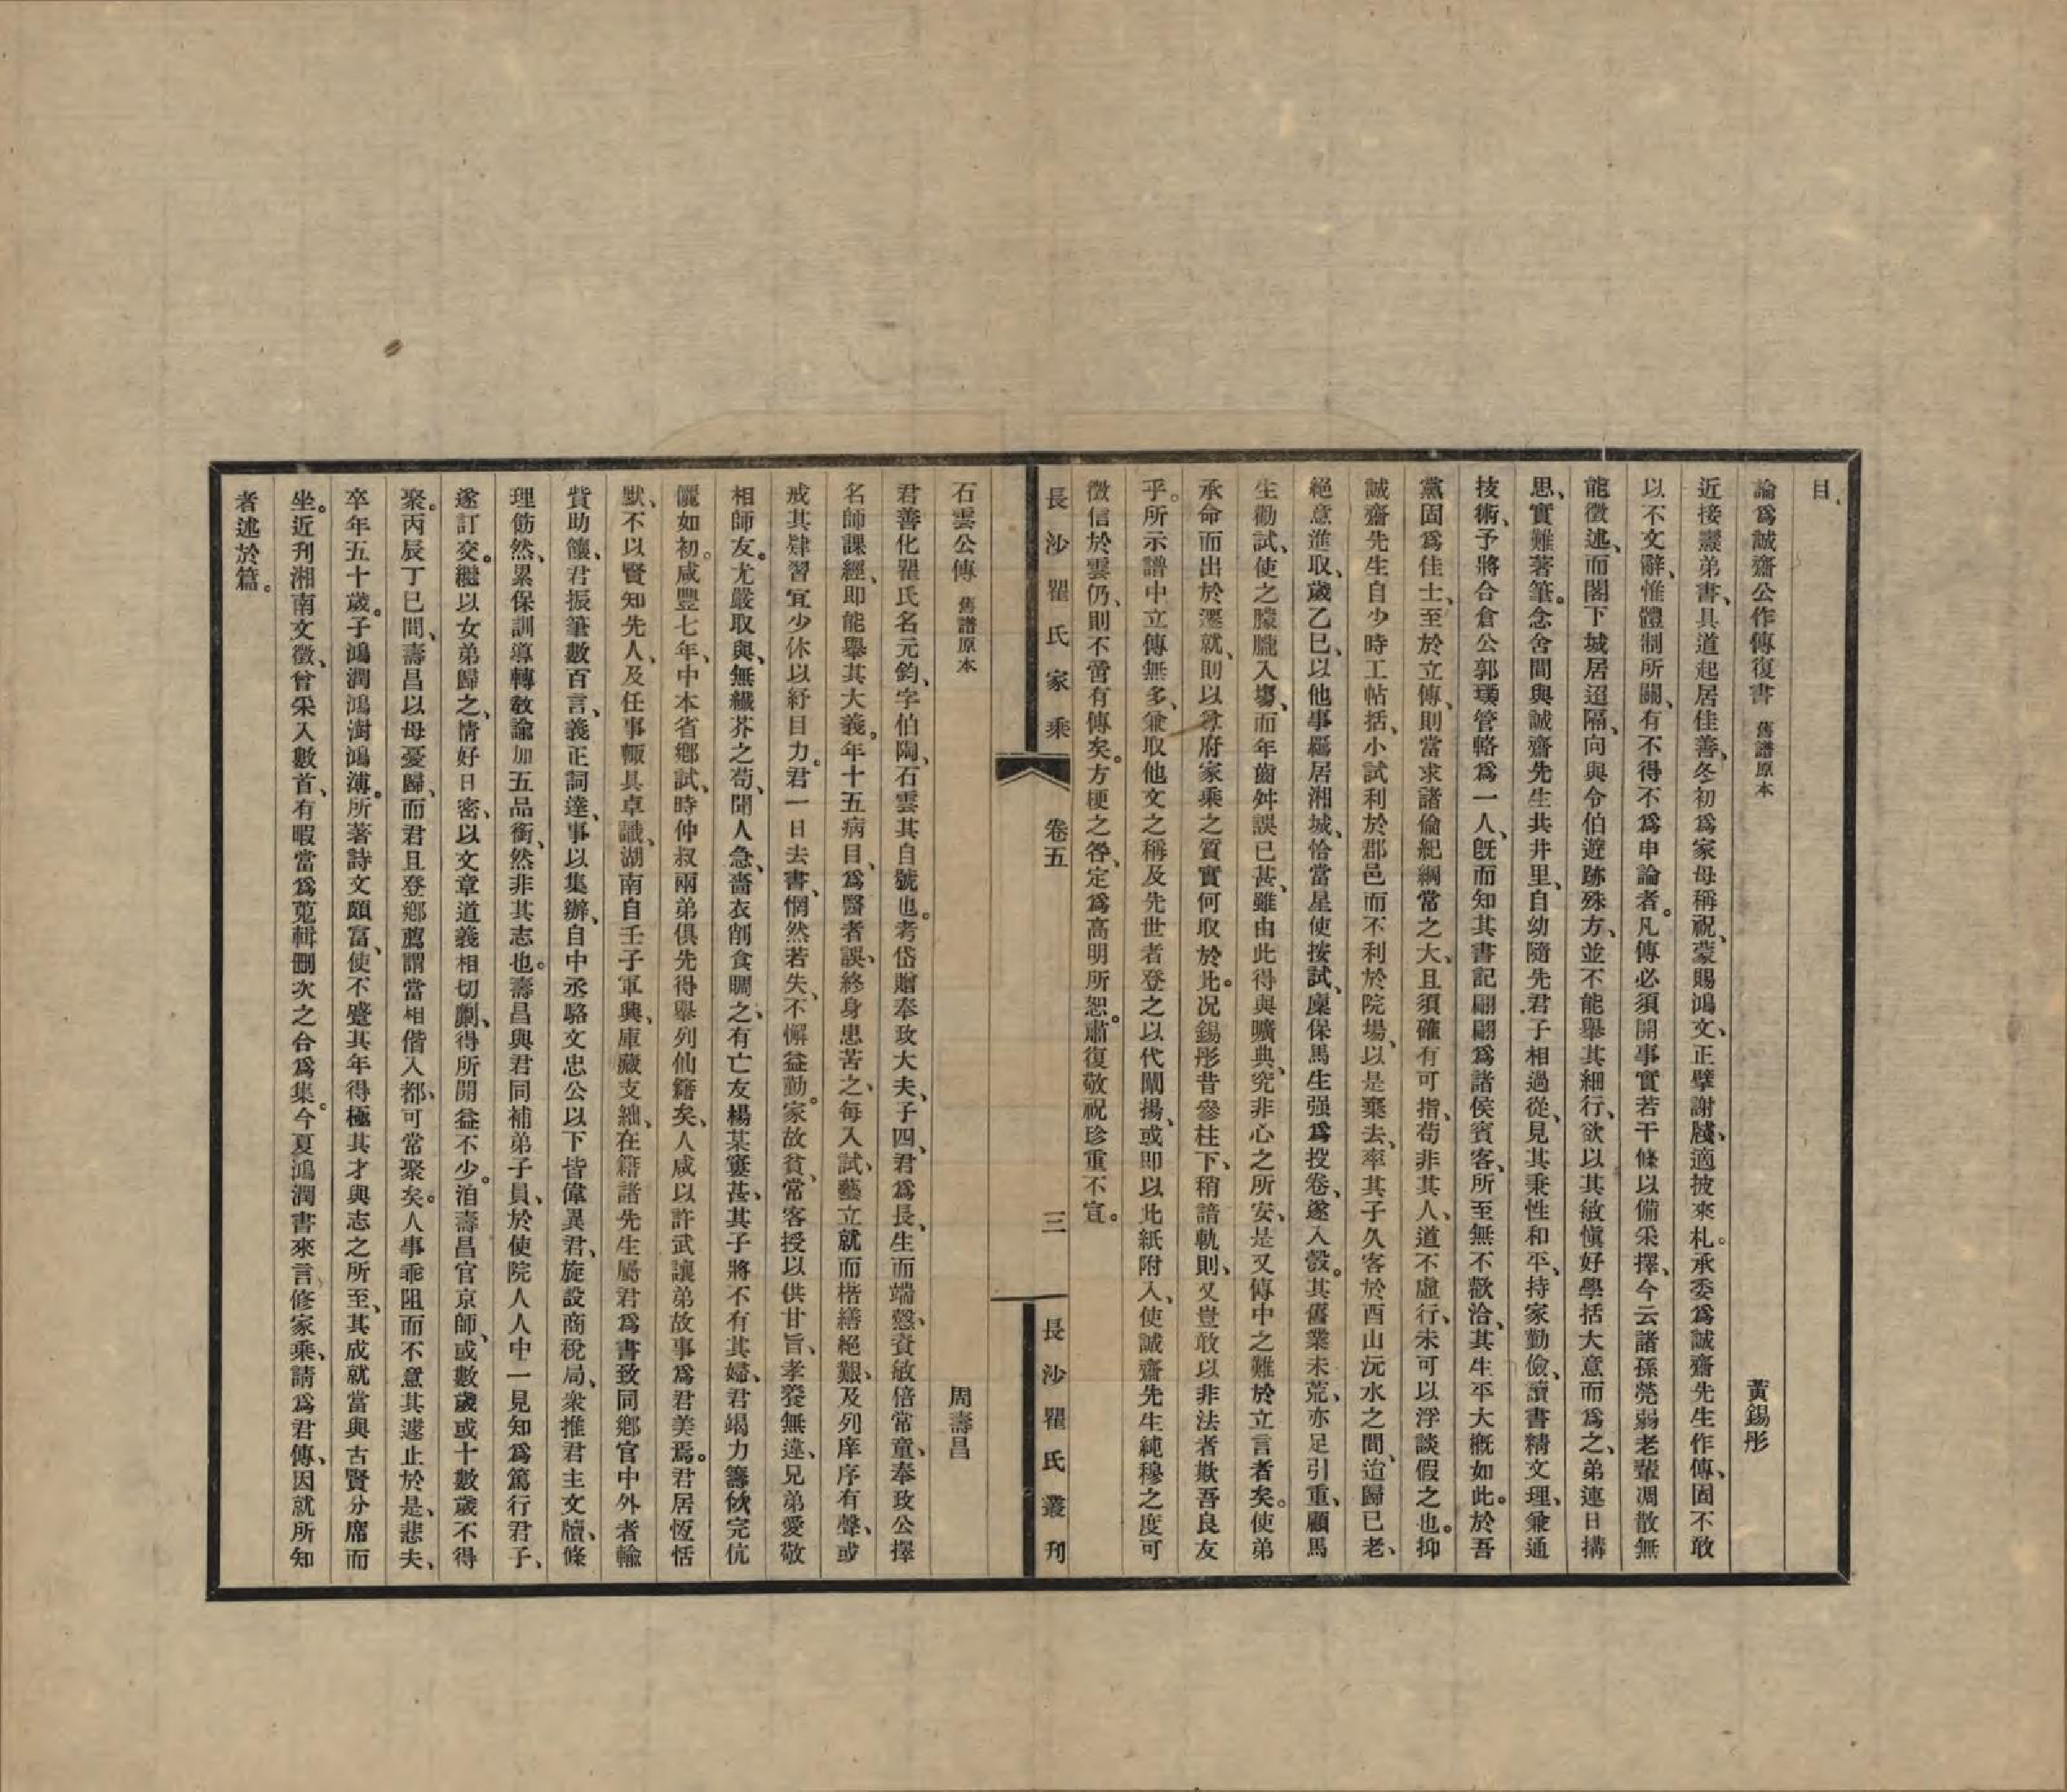 目、
論爲誠齋公作傳復書　舊譜原本　黃錫彤
近接叢弟書、具道起居佳善、冬初爲家母稱祝、蒙賜鴻文、正擘謝牋、適披來札。承委爲誠齋先生作傳、固不敢
以不文辭、惟體制所關、有不得不爲申論者。凡傳必須開事實若干條以備采擇、今云諸孫煢弱老輩凋散無
能徵述、而閣下城居迢隔、向與令伯遊跡殊方、並不能舉其細行、欲以其敏愼好學括大意而爲之、弟連日搆
思、實難著筆。念舍間與誠齋先生共井里、自幼隨先君子相過從、見其秉性和平、持家勤儉、讀書精文理、兼通
技術、予將合倉公郭璞管輅爲一人、旣而知其書記翩翩爲諸侯賓客、所至無不歡洽、其生平大槪如此。於吾
黨固爲佳士、至於立傳、則當求諸倫紀綱常之大、且須確有可指、苟非其人、道不虛行、未可以浮談假之也。抑
誠齋先生自少時工帖括、小試利於郡邑而不利於院場、以是棄去、率其子久客於酉山沅水之間、迨歸已老、
絕意進取、歲乙巳、以他事羈居湘城、恰當星使按試、廩保馬生强爲投卷、遂入彀。其舊業未荒、亦足引重、顧馬
生勸試、使之朦朧入塲、而年齒舛誤已甚、雖由此得與曠典、究非心之所安、是又傳中之難於立言者矣。使弟
承命而出於遷就、則以尊府家乘之質實何取於此。况錫彤昔參柱下、稍諳軌則、又豈敢以非法者欺吾良友
乎。所示譜中立傳無多、兼取他文之稱及先世者登之以代闡揚、或即以此紙附入、使誠齋先生純穆之度可
徵信於雲仍、則不啻有傳矣。方梗之咎、定爲高明所恕。肅復敬祝珍重不宣。
長沙瞿氏家乘　卷五　三　長沙瞿氏叢刊
石雲公傳　舊譜原本　周壽昌
君善化瞿氏名元鈞、字伯陶、石雲其自號也。考岱贈奉政大夫、子四、君爲長、生而端慤、資敏倍常童、奉政公擇
名師課經、即能舉其大義。年十五病目、爲醫者誤、終身患苦之、每入試、藝立就而楷繕絕艱、及列庠序有聲、或
戒其肄習宜少休以紓目力。君一日去書、惘然若失、不懈益勤。家故貧、常客授以供甘旨、孝養無違、兄弟愛敬
相師友。尤嚴取與、無纖芥之苟、聞人急、嗇衣削食賙之、有亡友楊某窶甚、其子將不有其婦、君竭力籌佽完伉
儷如初。咸豐七年、中本省鄕試、時仲叔兩弟俱先得舉列仙籍矣、人咸以許武讓弟故事爲君美焉。君居恆恬
默、不以賢知先人、及任事輒具卓識、湖南自壬子軍興、庫藏支絀、在籍諸先生屬君爲書致同鄕官中外者輸
貲助饟、君振筆數百言、義正詞達、事以集辦、自中丞駱文忠公以下皆偉異君、旋設商稅局、衆推君主文牘、條
理秩然、累保訓導轉敎諭加五品銜、然非其志也。壽昌與君同補弟子員、於使院人人中一見知爲篤行君子、
遂訂交。繼以女弟歸之、情好日密、以文章道義相切劘、得所開益不少。洎壽昌官京師、或數歲或十數歲不得
聚。丙辰丁巳間、壽昌以母憂歸、而君且登鄕薦、謂當相偕入都、可常聚矣。人事乖阻而不意其遽止於是、悲夫、
卒年五十歲。子鴻潤鴻澍鴻溥。所著詩文頗富、使不蹙其年得極其才與志之所至、其成就當與古賢分席而
坐。近刊湘南文徵、曾采入數首、有暇當爲蒐輯刪次之合爲集。今夏鴻潤書來言修家乘、請爲君傳、因就所知
者述於篇。